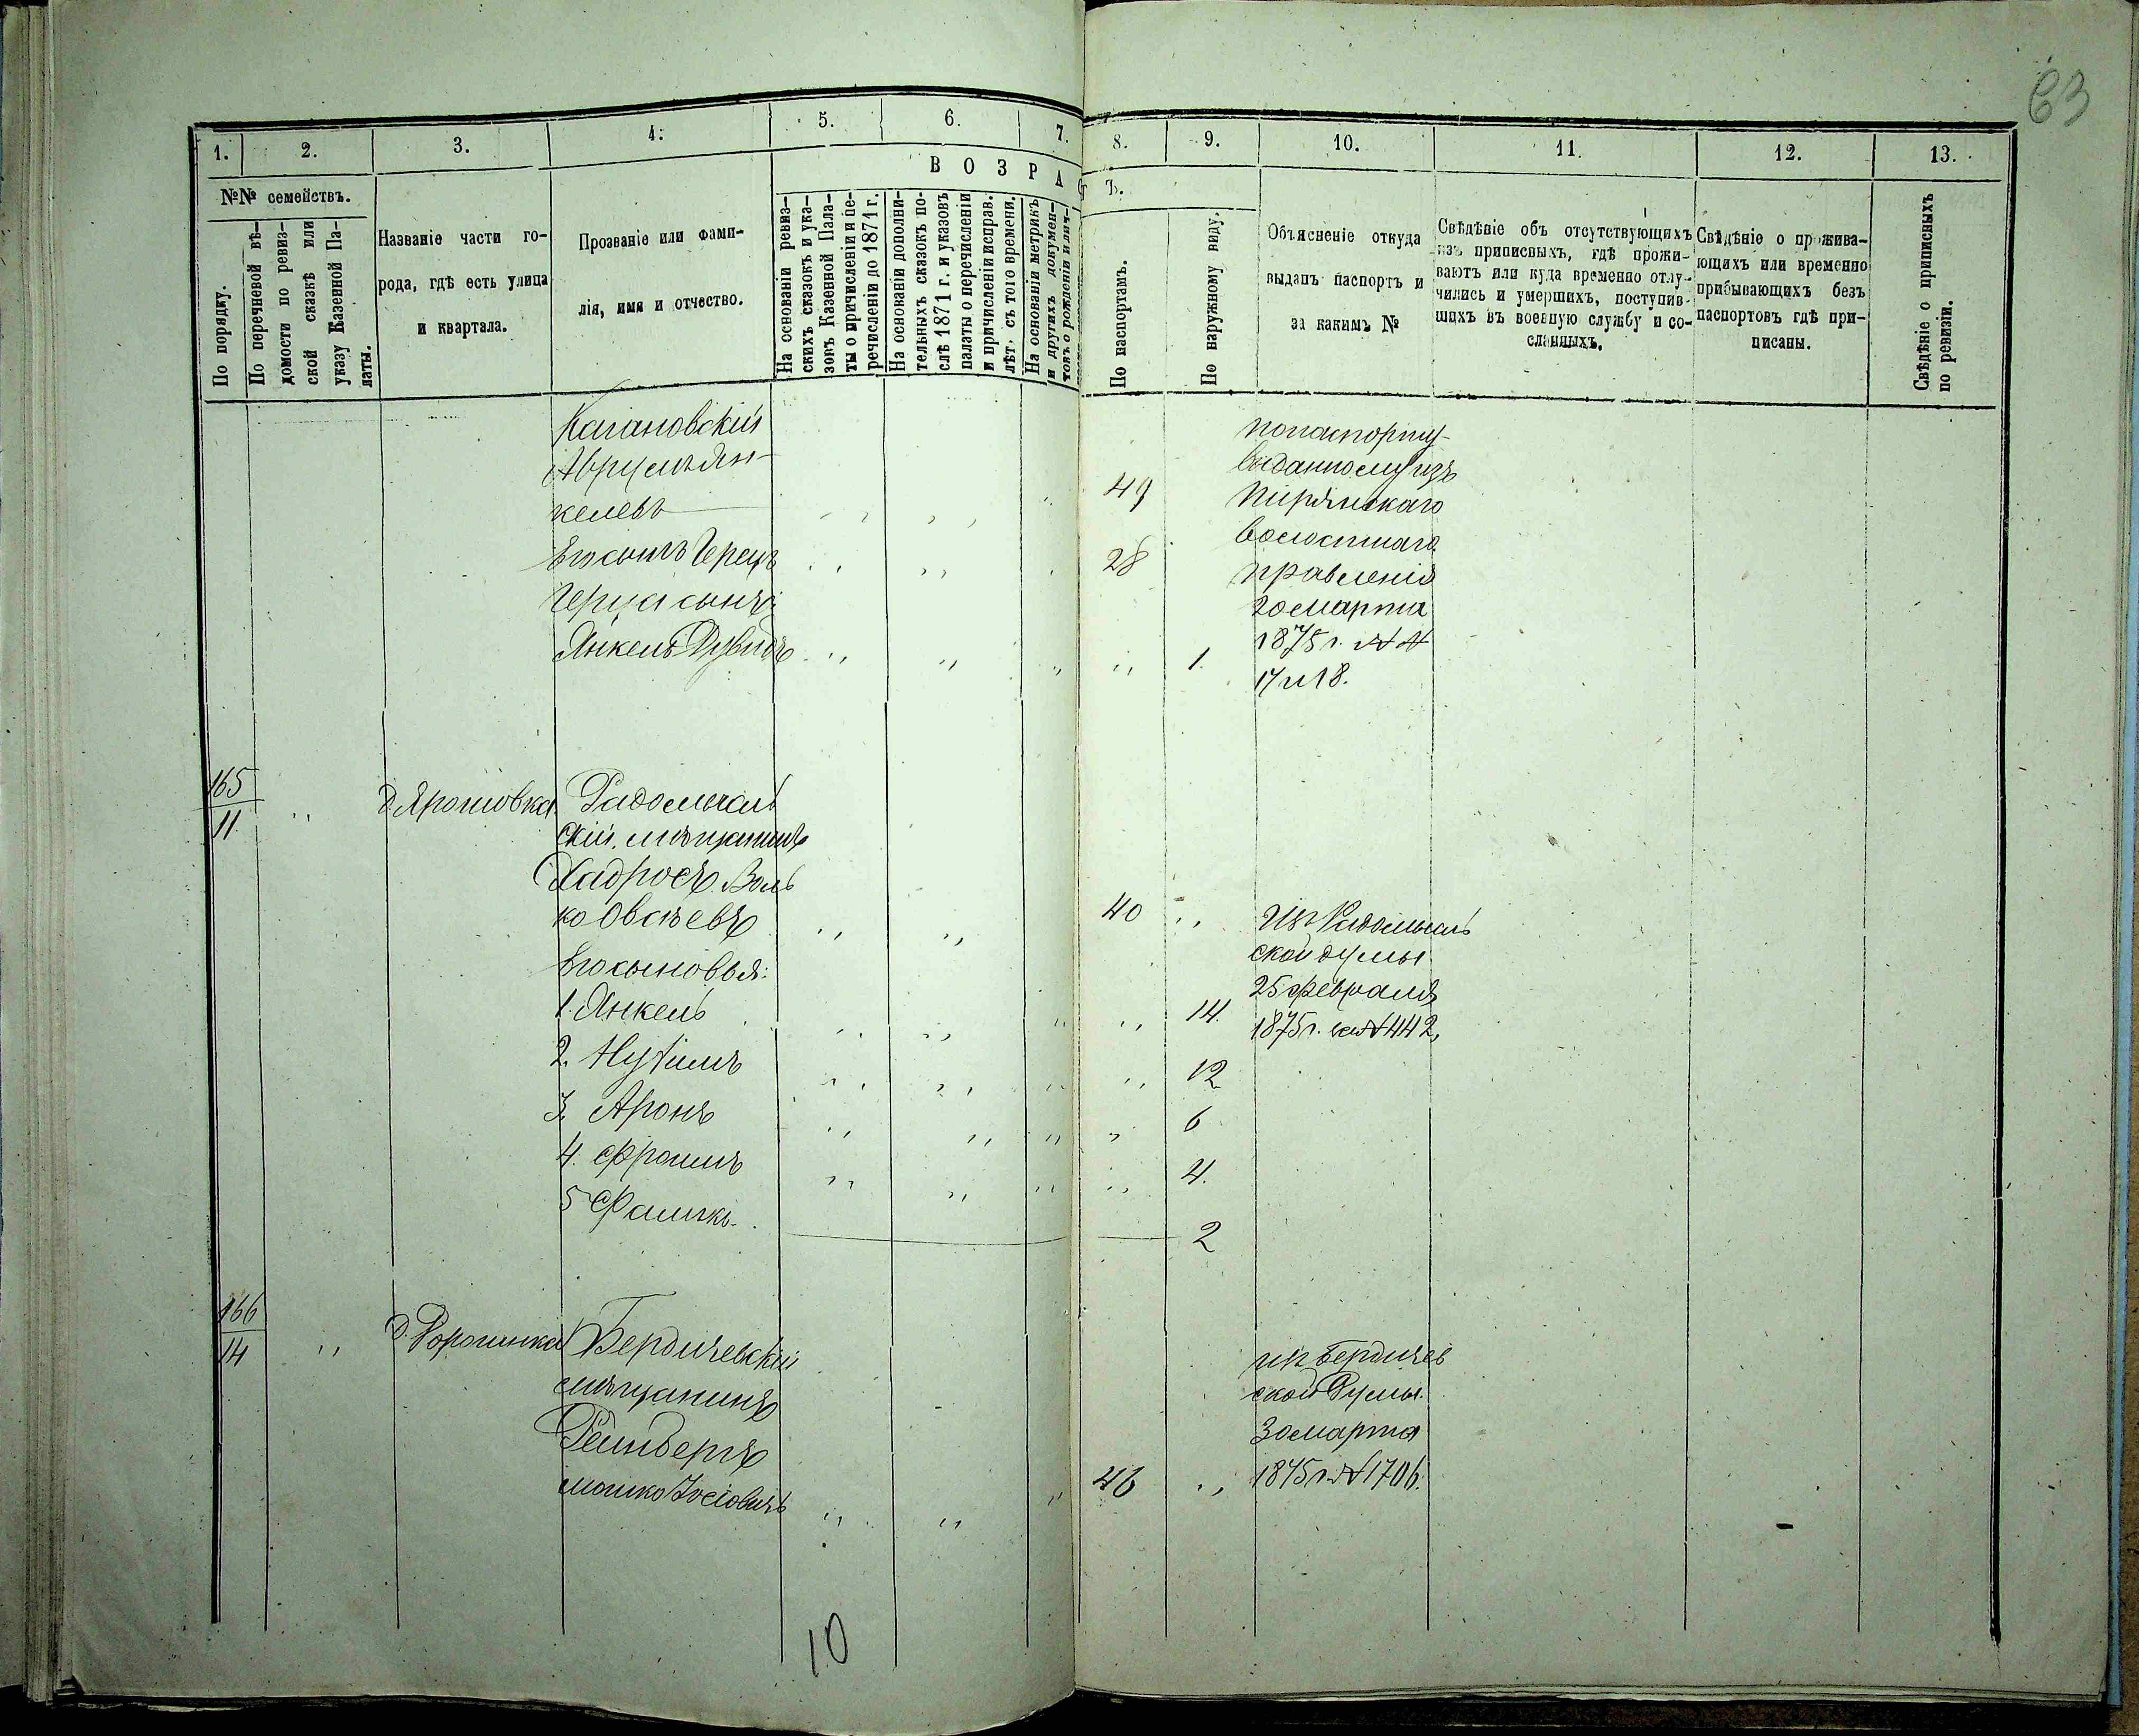 63
1.
2.
3.
4:
5.
6.
7.
8.
9.
10.
11.
12.
13.
ВОЗРАСТЪ.
№№ семействъ.
По порядку.
По перечневой вѣ-
домости по ревиз-
ской сказкѣ или
указу Казенной Па-
латы.
Названіе части го-
рода, гдѣ есть улица
и квартала.
Прозваніе или фами-
лія, имя и отчество.
На основаніи ревиз-
скихъ сказокъ и ука-
зовъ Казенной Пала-
ты о причисленіи и пе-
речисленіи до 1871 г.
На основаніи дополни-
тельныхъ сказокъ по-
слѣ 1871 г. и указовъ
палаты о перечисленіи
и причисленіи исправ.
лѣт. съ того времени.
На основаніи метрикъ
и другихъ докумен-
товъ о рожденіи и лич-
По паспортамъ.
По наружному виду.
Объясненіе откуда
выданъ паспортъ и
за какимъ №
Свѣдѣніе объ отсутствующихъ
изъ приписныхъ, гдѣ прожи-
ваютъ или куда временно отлу-
чились и умершихъ, поступив-
шихъ въ военную службу и со-
сланныхъ.
Свѣдѣніе о прожива-
ющихъ или временно
прибывающихъ безъ
паспортовъ гдѣ при-
писаны.
Свѣдѣніе о приписныхъ
по ревизіи.
Кагановскій
Аврумъ Ян-
келевъ
49
Его сынъ Герцъ
28
Герца сынъ:
Янкель Дувидъ
1.
по паспорту
выданному изъ
волостнаго
правленія
20 марта
1875 г. №№
17 и 18.
165
11.
Д. Ярошовка
Радомысль
скій мѣщанинъ
Воль
ко Овсѣевъ
40
Его сыновья:
1. Янкель
14.
2. Нухимъ
12
3. Аронъ
6
4. Фроимъ
4.
5
2
Изъ Радомысль
ской думы
25 февраля
1875 г. за № 442,
166
14
Бердичевскій
мѣщанинъ
Мошко Іосіовичъ
46
изъ Бердичев
ской Думы
30 марта
1875 г. № 1706.
10